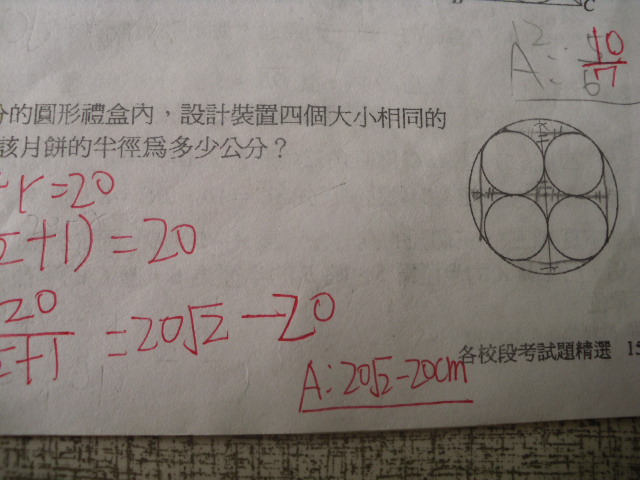 C
A: 10/7
分的圓形禮盒內，設計裝置四個大小相同的
該月餅的半徑為多少公分？
r=20
2+1)=20
20/2+1=20√2-20
A:20√2-20cm
各校段考試題精選 15